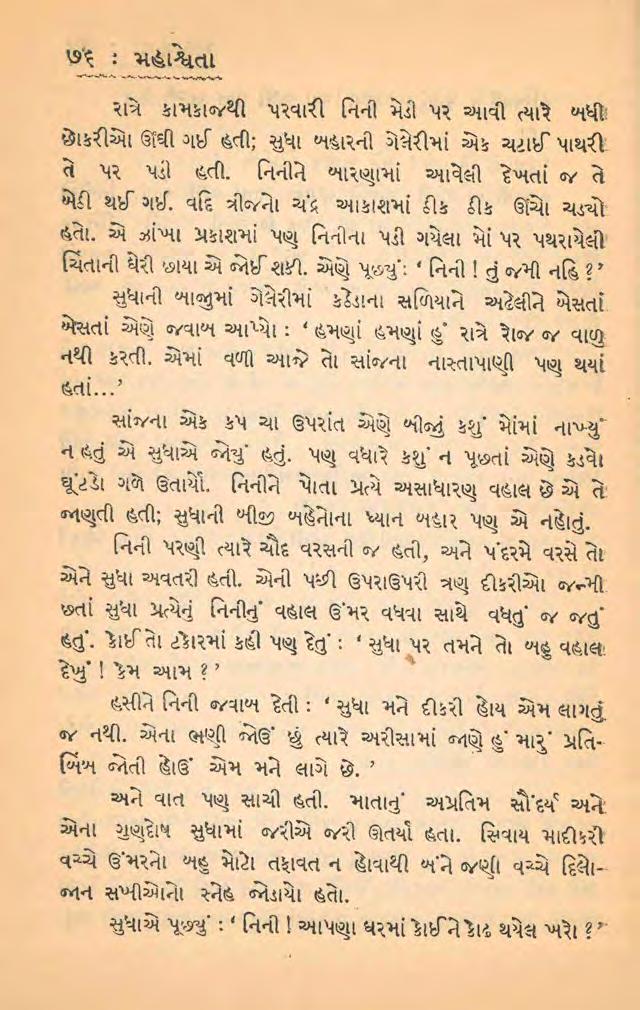 ૭૬ : મહાશ્વેતા
રાત્રે કામકાજથી પરવારી નિની મેડી પર આવી ત્યારે બધી
છોકરીઓ ઊંઘી ગઈ હતી; સુધા બહારની ગેલેરીમાં એક ચટાઈ પાથરી
તે પર પડી હતી. નિનીને બારણામાં આવેલી દેખતાં જ તે
બેઠી થઈ ગઈ. વદિ ત્રીજનો ચંદ્ર આકાશમાં ઠીક ઠીક ઊંચો ચડ્યો
હતો. એ ઝાંખા પ્રકાશમાં પણ નિનીના પડી ગયેલા મોં પર પથરાયેલી
ચિંતાની ઘેરી છાયા એ જોઈ શકી. એણે પૂછ્યું: ‘ નિની ! તું જમી નહિ ?’
સુધાની બાજુમાં ગેલેરીમાં કઠેડાના સળિયાને અઢેલીને બેસતાં
બેસતાં એણે જવાબ આપ્યો : ‘ હમણાં હમણાં હું રાત્રે રોજ જ વાળુ
નથી કરતી. એમાં વળી આજે તો સાંજના નાસ્તાપાણી પણ થયાં
હતાં...’
સાંજના એક કપ ચા ઉપરાંત એણે બીજું કશું મોંમાં નાખ્યું
ન હતું એ સુધાએ જોયું હતું. પણ વધારે કશું ન પૂછતાં એણે કડવો
ઘૂંટડો ગળે ઉતાર્યો. નિનીને પોતા પ્રત્યે અસાધારણ વહાલ છે એ તે
જાણતી હતી; સુધાની બીજી બહેનોના ધ્યાન બહાર પણ એ નહોતું.
નિની પરણી ત્યારે ચૌદ વરસની જ હતી, અને પંદરમે વરસે તો
એને સુધા અવતરી હતી. એની પછી ઉપરાઉપરી ત્રણ દીકરીઓ જન્મી
છતાં સુધા પ્રત્યેનું નિનીનું વહાલ ઉંમર વધવા સાથે વધતું જ જતું
હતું. કોઈ તો ટકોરમાં કહી પણ દેતું : ‘ સુધા પર તમને તો બહુ વહાલ
દેખું ! કેમ આમ ?’
હસીને નિની જવાબ દેતી : ‘ સુધા મને દીકરી હોય એમ લાગતું
જ નથી. એના ભણી જોઉં છું ત્યારે અરીસામાં જાણે હું મારું પ્રતિ-
બિંબ જોતી હોઉં એમ મને લાગે છે. ’
અને વાત પણ સાચી હતી. માતાનું અપ્રતિમ સૌંદર્ય અને
એના ગુણદોષ સુધામાં જરીએ જરી ઊતર્યાં હતા. સિવાય માદીકરી
વચ્ચે ઉંમરનો બહુ મોટો તફાવત ન હોવાથી બંને જણી વચ્ચે દિલો-
જાન સખીઓનો સ્નેહ જોડાયો હતો.
સુધાએ પૂછ્યું : ‘ નિની ! આપણા ઘરમાં કોઈને કોઢ થયેલ ખરો ?’